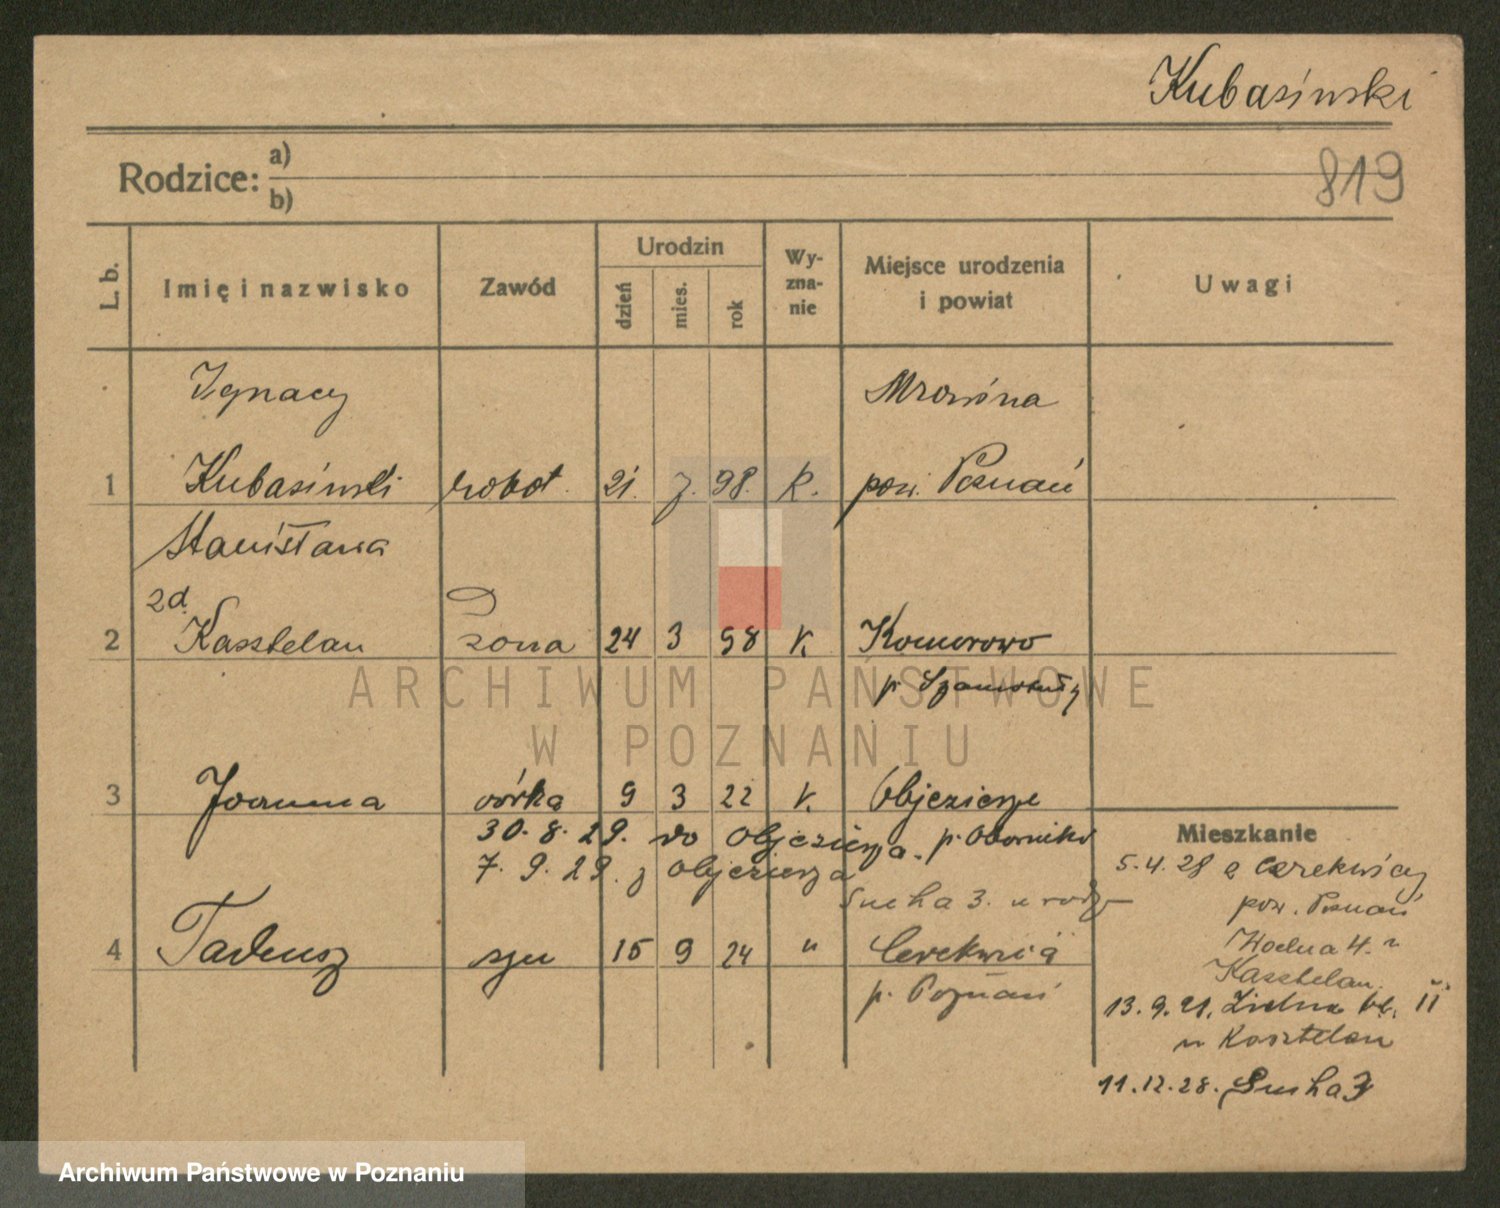 Kubasinski
819
Rodzice: a)
b)
L. b.
Imię i nazwisko
Zawód
Urodzin
dzień
mies.
rok
Wy-
zna-
nie
Miejsce urodzenia
i powiat
Uwagi
Ignacy Mrowino
1 Kubasinski robot. 21. 7. 98. K. pow. Poznań
Stanisława
2 zd. Kasztelan żona 24 3 98 K. Komorowo
p. Szamotuły
3 Joanna córka 9 3 22 K. Objezierze
30. 8. 29. do Objezierza. p. Oborniki
7. 9. 29. z Objezierza
Sucha 3. u rodz.
4 Tadeusz syn 15 9 24 " Cerekwica
p. Poznań
Mieszkanie
5.4.28 z Cerekwicy
pow. Poznań
Wodna 4.
Kasztelan.
13.9. II
u Kasztelan
11.12.28. Sucha 3
ARCHIWUM PAŃSTWOWE
W POZNANIU
Archiwum Państwowe w Poznaniu